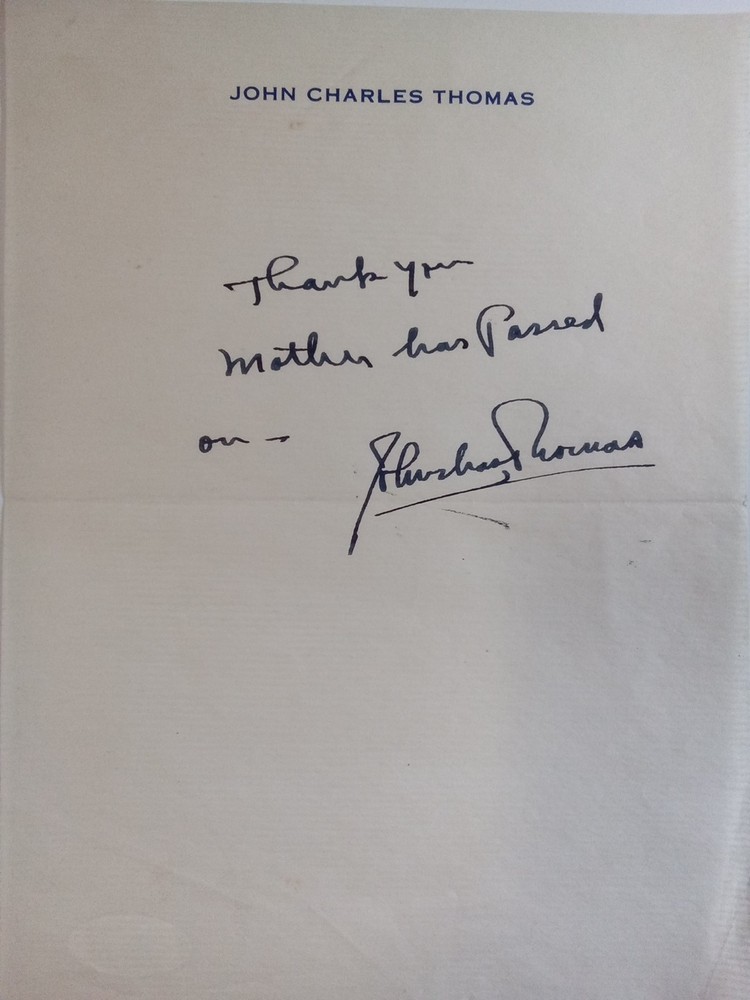 JOHN CHARLES THOMAS
Thank you
Mother has Passed
on –
John Chas Thomas